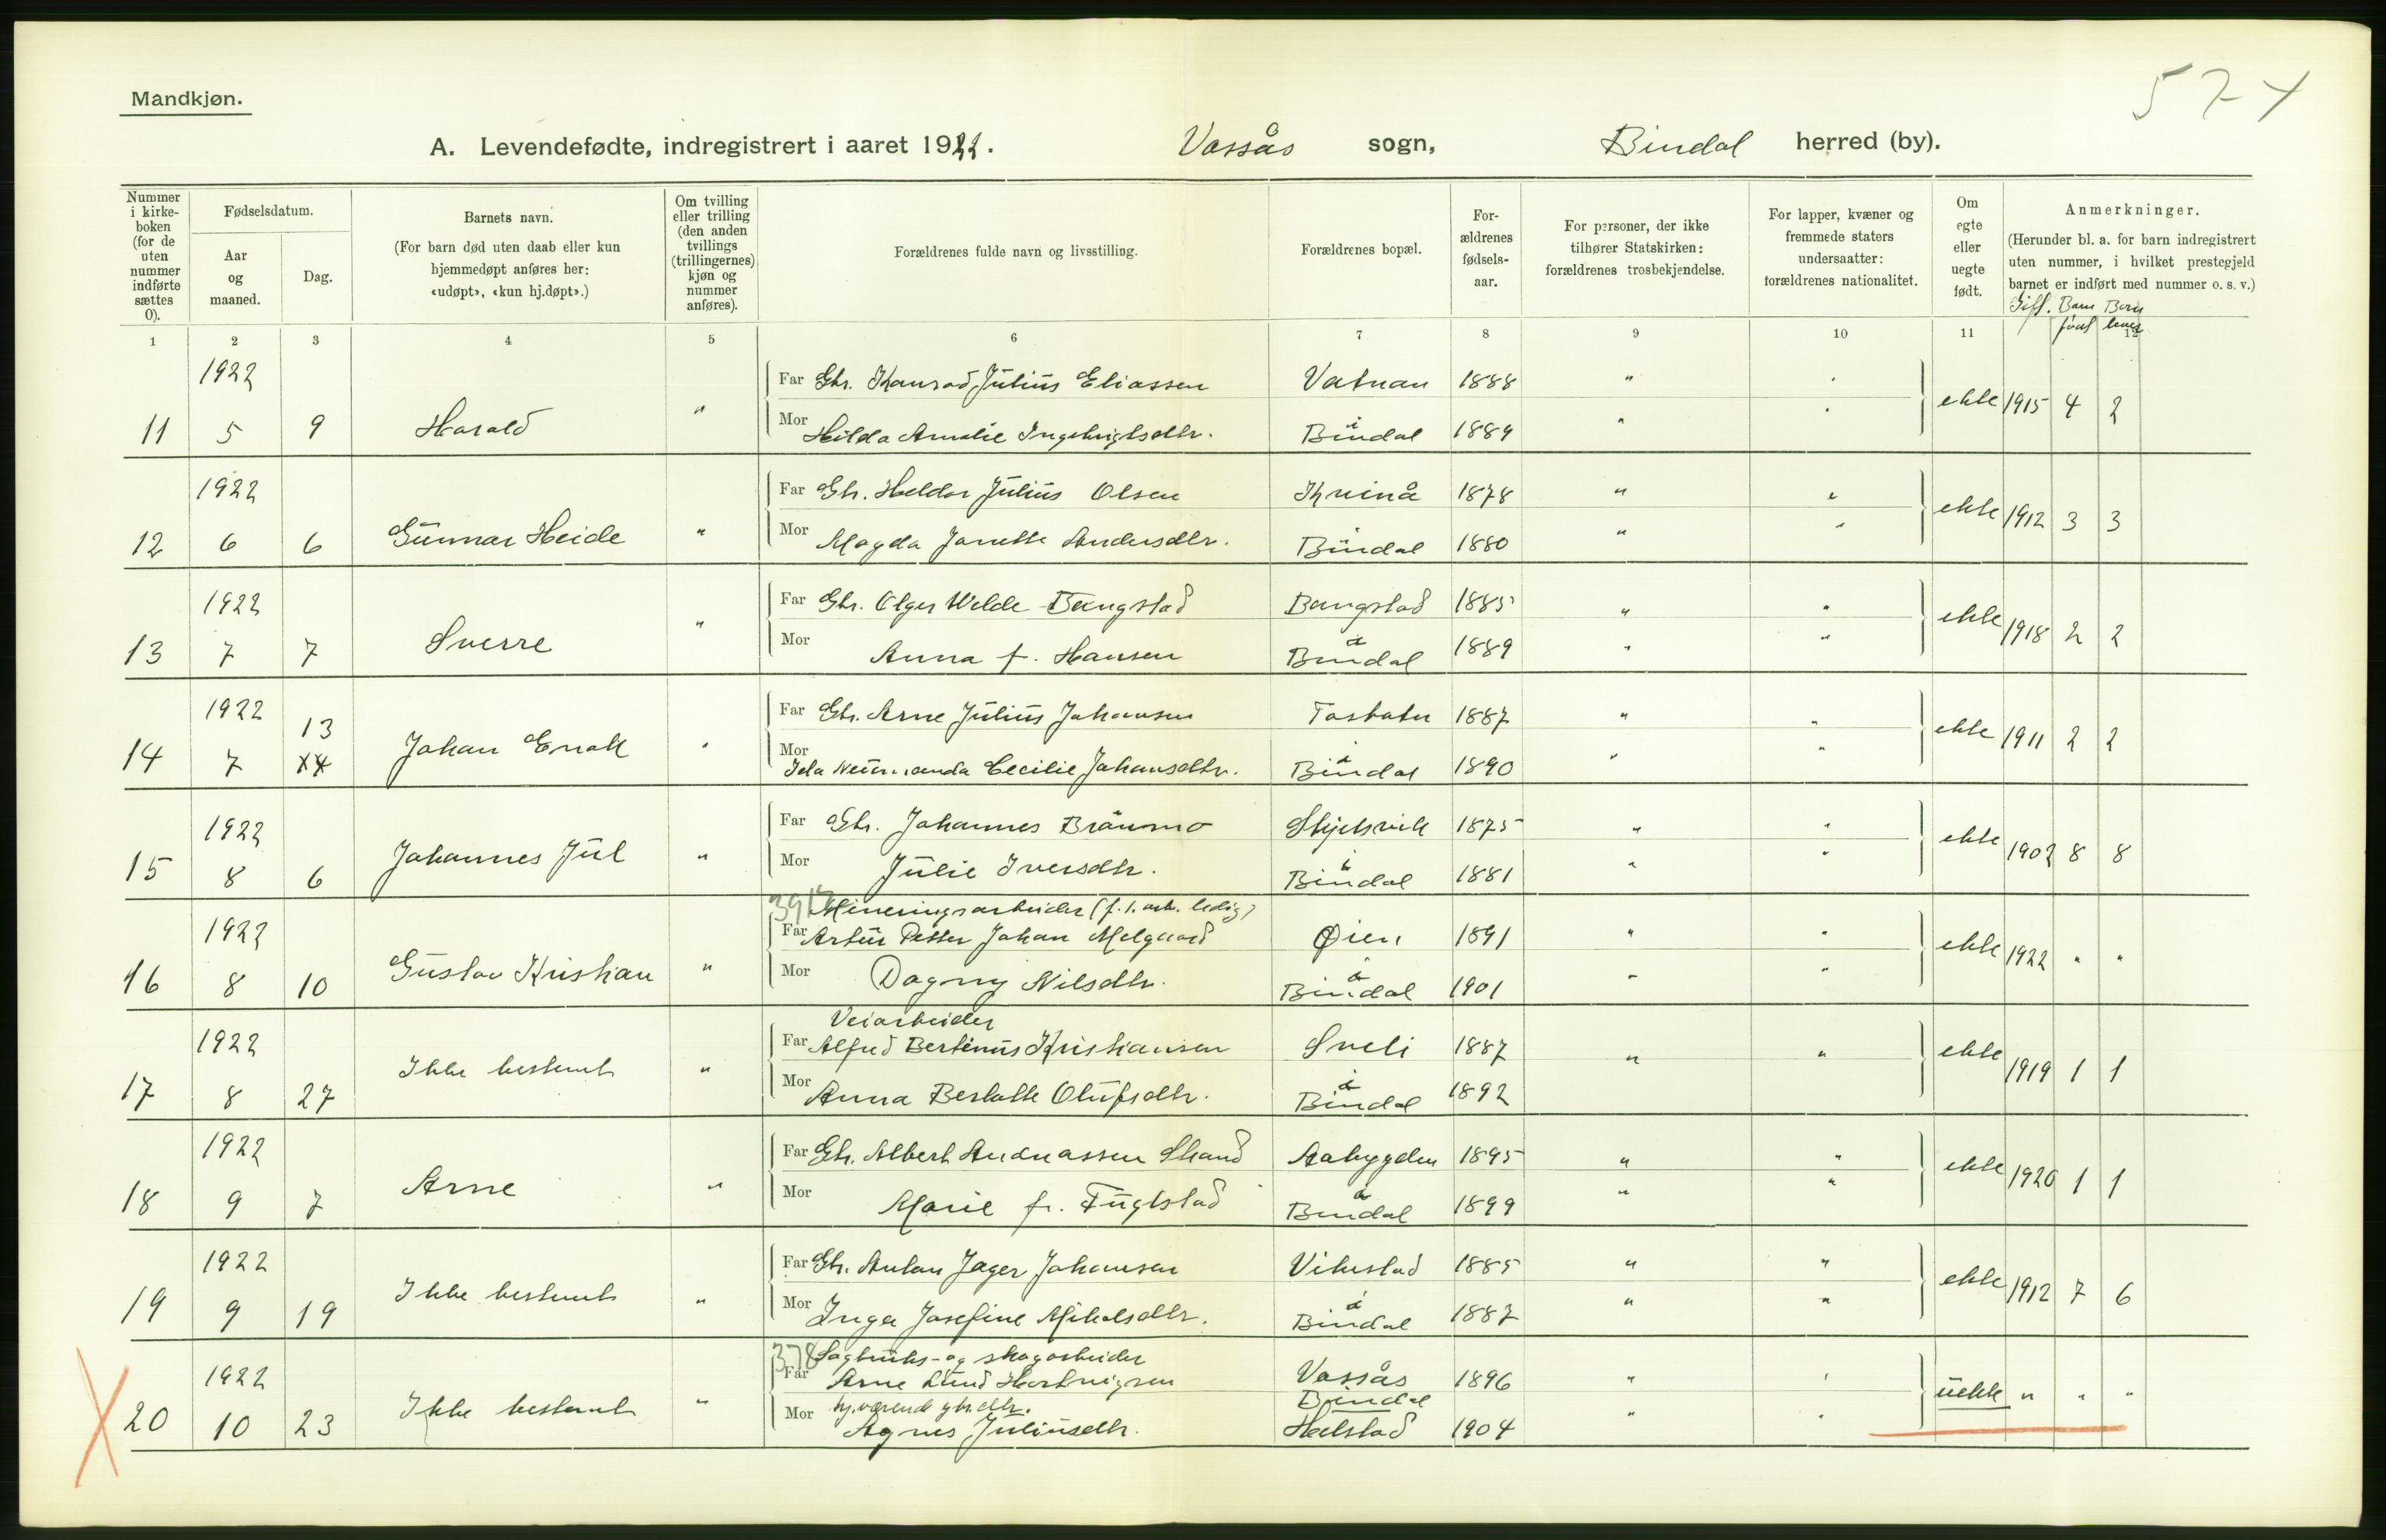 574
Mandkjøn.
A. Levendefødte, indregistrert i aaret 1922. Vassås sogn, Bindal herred (by).
Nummer i kirke-boken (for de uten nummer indførte sættes 0).
Fødselsdatum.
Aar og maaned.
Dag.
Barnets navn.
(For barn død uten daab eller kun hjemmedøpt anføres her: «udøpt», «kun hj.døpt».)
Om tvilling eller trilling (den anden tvillings (trillingernes) kjøn og nummer anføres).
Forældrenes fulde navn og livsstilling.
Forældrenes bopæl.
For-ældrenes fødsels-aar.
For personer, der ikke tilhører Statskirken: forældrenes trosbekjendelse.
For lapper, kvæner og fremmede staters undersaatter: forældrenes nationalitet.
Om egte eller uegte født.
Anmerkninger.
(Herunder bl. a. for barn indregistrert uten nummer, i hvilket prestegjeld barnet er indført med nummer o. s. v.)
Gift. Barn født Børn lever
1 2 3 4 5 6 7 8 9 10 11 12
1922 Far Gbr. Konrad Julius Eliassen Vatnan 1888 " "
11 5 9 Harald " Mor Hilda Amalie Ingebrigtsdtr. i Bindal 1889 " " ekte 1915 4 2
1922 Far Gbr. Heldor Julius Olsen Kvinå 1878 " "
12 6 6 Gunnar Heide " Mor Magda Janette Andersdtr. i Bindal 1880 " " ekte 1912 3 3
1922 Far Gbr. Olger Welde Bangstad Bangstad 1885 " "
13 7 7 Sverre " Mor Anna f. Hansen i Bindal 1889 " " ekte 1918 2 2
1922 13 Far Gbr. Arne Julius Johansen Tosbotn 1887 " "
14 7 Johan Enok " Mor Ida Cecilie Johansdtr. i Bindal 1890 " " ekte 1911 2 2
1922 Far Gbr. Johannes Bråumo Skjelsvik 1875 " "
15 8 6 Johannes Jul " Mor Julie Iversdtr. i Bindal 1881 " " ekte 1902 8 8
Mineringsarbeider (f. t. arb. ledig)
1922 Far Artur Petter Johan Melgaard Øien 1891 " "
16 8 10 Gustav Kristian " Mor Dagny Nilsdtr. i Bindal 1901 " " ekte 1922 " "
Veiarbeider
1922 Far Alfred Bertinus Kristiansen Sveli 1887 " "
17 8 27 Ikke bestemt " Mor Anna Bertotte Olufsdtr. i Bindal 1892 ekte 1919 1 1
1922 Far Gbr. Albert Andreassen Skard Aabygden 1895 " "
18 9 7 Arne " Mor Marie f. Fuglstad i Bindal 1899 " " ekte 1920 1 1
1922 Far Gbr. Anton Jager Johansen Vikestad 1885 " "
19 9 19 Ikke bestemt " Mor Inga Josefine Mikalsdtr. i Bindal 1887 " " ekte 1912 7 6
378 Sagbruks- og skogarbeider
1922 Far Arne Lund Hartvigsen Vassås Bindal 1896 " "
hj.værende gbr.dtr.
20 10 23 Ikke bestemt " Mor Agnes Juliusdtr. Helstad 1904 " " uekte " " "